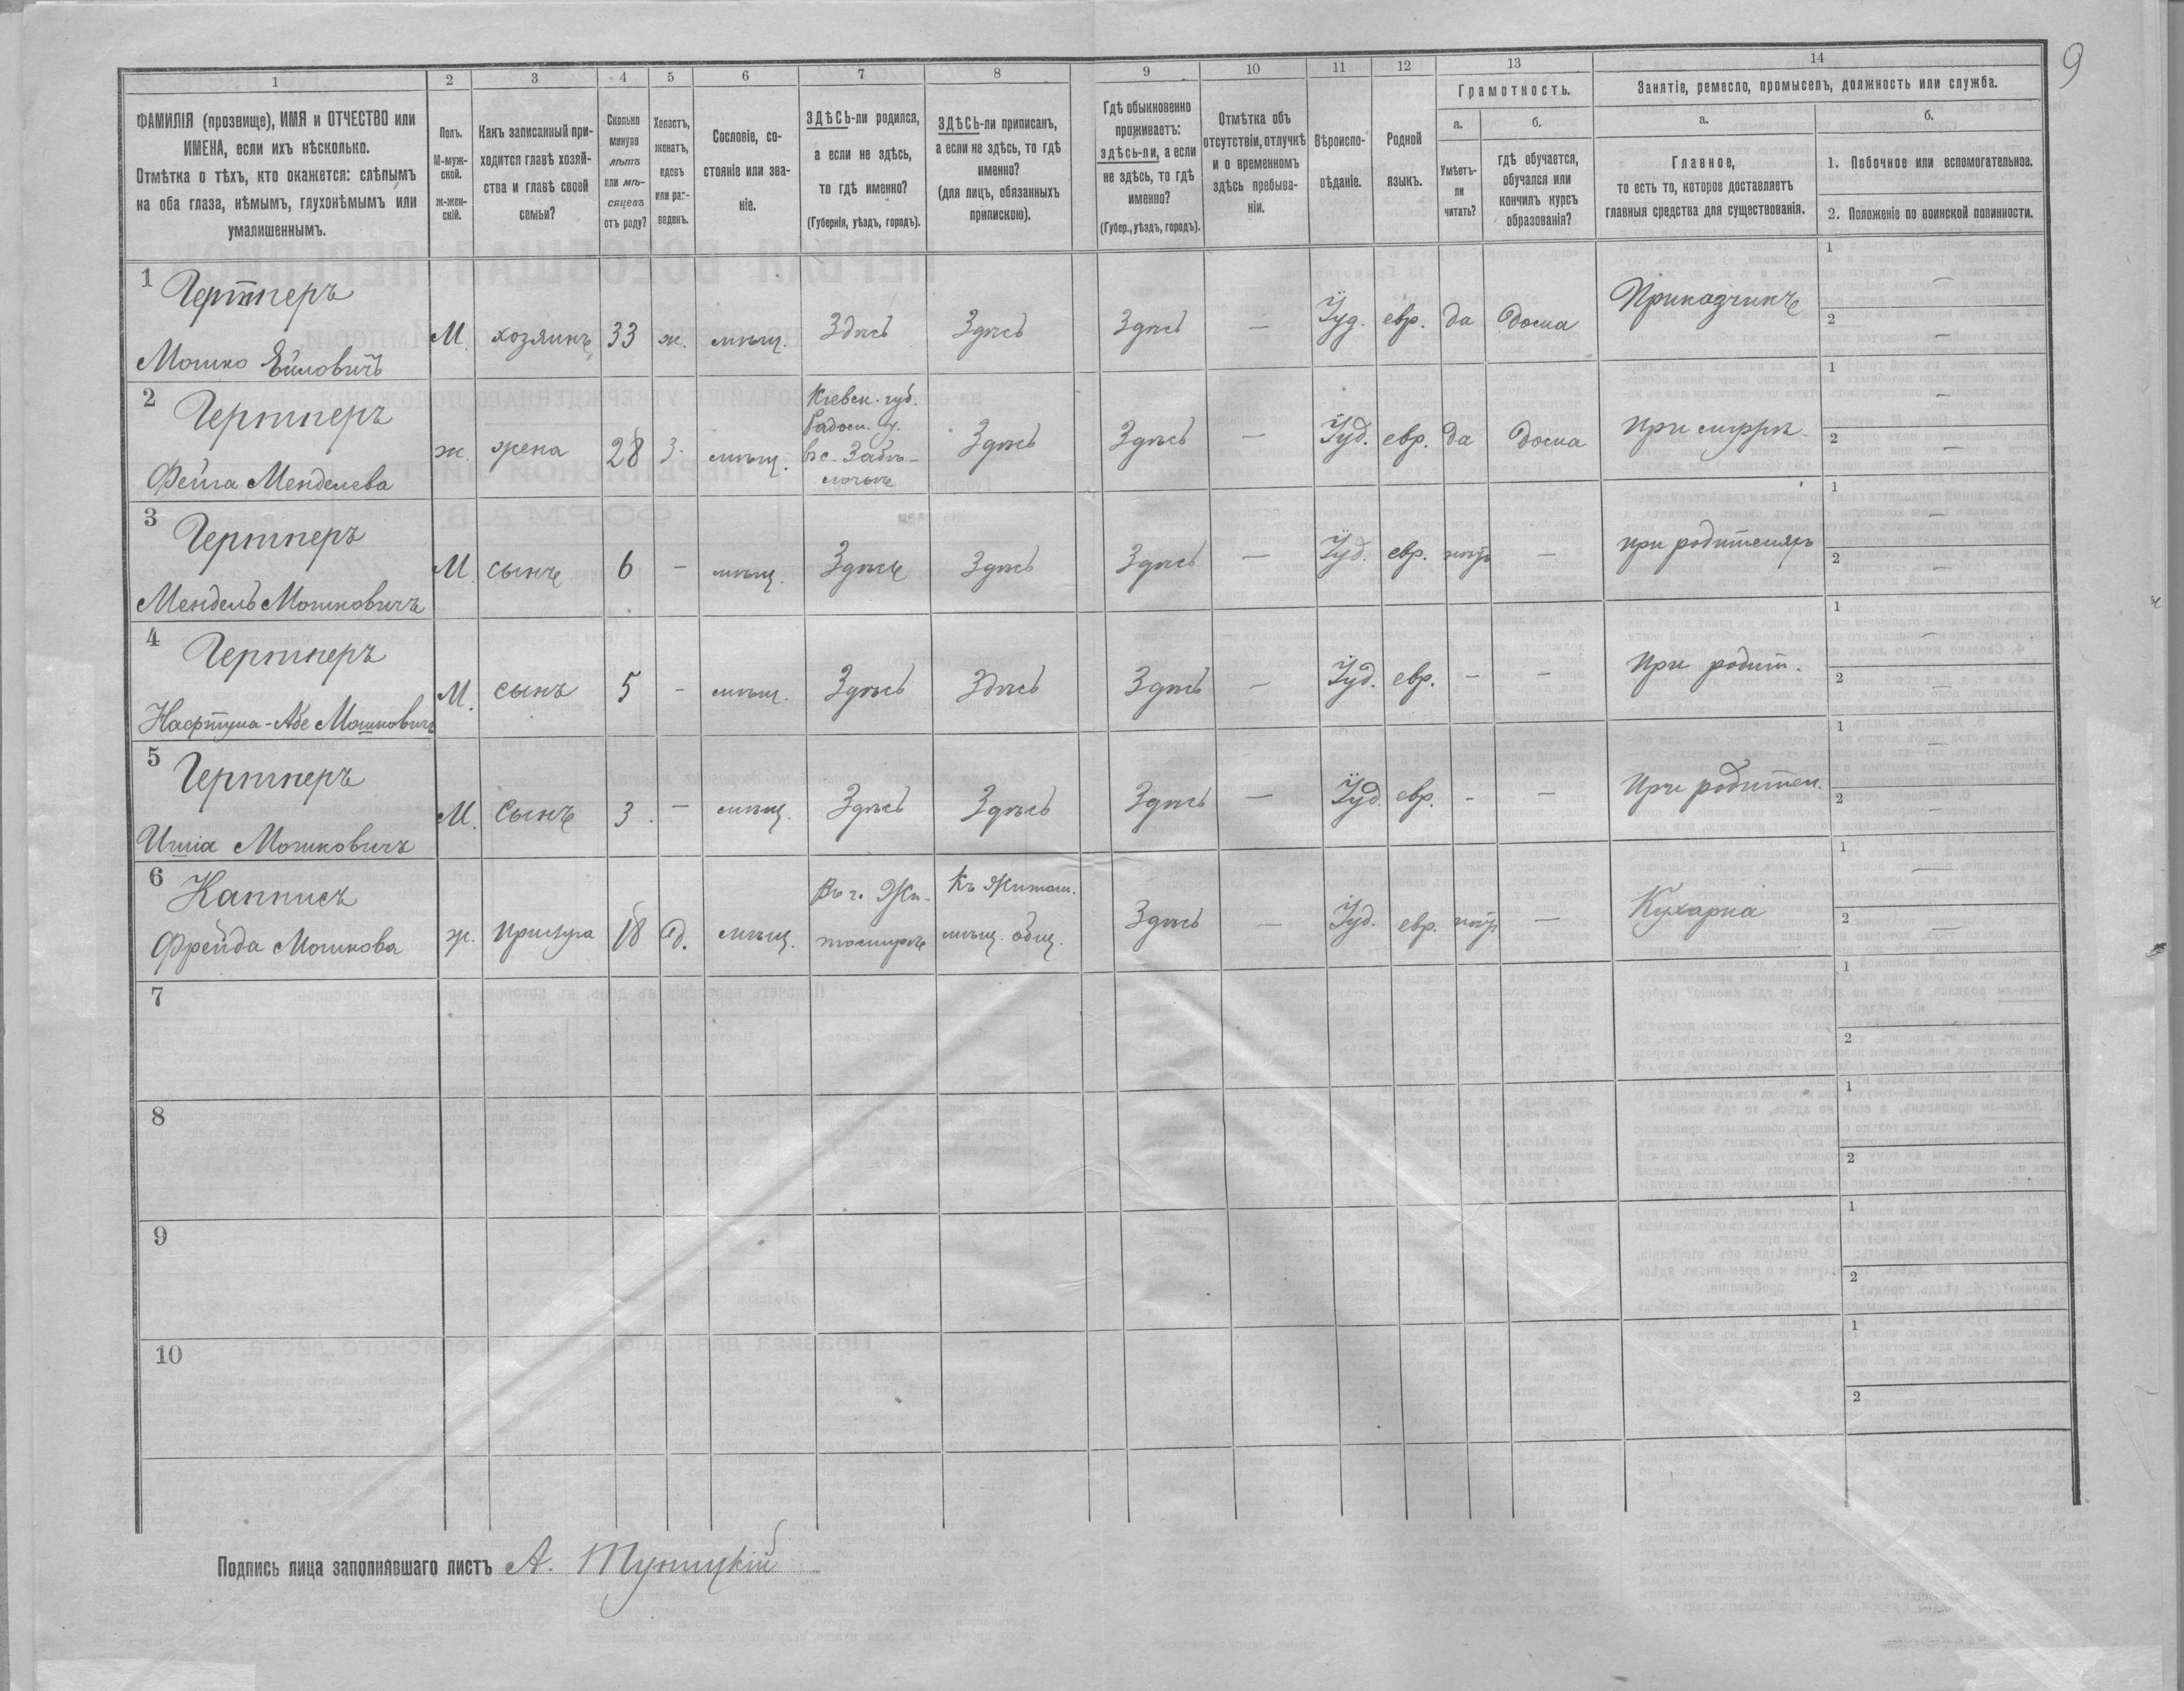 9
1 2 3 4 5 6 7 8 9 10 11 12 13 14
ФАМИЛІЯ (прозвище), ИМЯ и ОТЧЕСТВО или
ИМЕНА, если ихъ нѣсколько.
Отмѣтка о тѣхъ, кто окажется: слѣпымъ
на оба глаза, нѣмымъ, глухонѣмымъ или
умалишеннымъ.
Полъ.
М-муж-
ской.
ж-жен-
скій.
Какъ записанный при-
ходится главѣ хозяй-
ства и главѣ своей
семьи?
Сколько
минуло
лѣтъ
или мѣ-
сяцевъ
отъ роду?
Холостъ,
женатъ,
вдовъ
или раз-
веденъ.
Сословіе, со-
стояніе или зва-
ніе.
ЗДѢСЬ-ли родился,
а если не здѣсь,
то гдѣ именно?
(Губернія, уѣздъ, городъ).
ЗДѢСЬ-ли приписанъ,
а если не здѣсь, то гдѣ
именно?
(для лицъ, обязанныхъ
припискою).
Гдѣ обыкновенно
проживаетъ:
здѣсь-ли, а если
не здѣсь, то гдѣ
именно?
(Губер., уѣздъ, городъ).
Отмѣтка объ
отсутствіи, отлучкѣ
и о временномъ
здѣсь пребыва-
ніи.
Вѣроиспо-
вѣданіе.
Родной
языкъ.
Грамотность.
а.
Умѣетъ-
ли
читать?
б.
гдѣ обучается,
обучался или
кончилъ курсъ
образованія?
Занятіе, ремесло, промыселъ, должность или служба.
а.
Главное,
то есть то, которое доставляетъ
главныя средства для существованія.
б.
1. Побочное или вспомогательное.
2. Положеніе по воинской повинности.
1 Гертнеръ
Мошко
М. хозяинъ 33 ж. мѣщ. Здѣсь Здѣсь Здѣсь — Іуд. евр. да дома Приказчикъ 1 — 2 —
2 Гертнеръ
Фейга Менделева
ж. жена 28 з. мѣщ.
Кіевск. губ.
Радом. у.
въ с.
Здѣсь Здѣсь — Іуд. евр. да дома при 1 — 2 —
3 Гертнеръ
Мендель Мошковичъ
М. сынъ 6 — мѣщ. Здѣсь Здѣсь Здѣсь — Іуд. евр. нѣтъ — при родителяхъ 1 — 2 —
4 Гертнеръ
Нафтула-Абе Мошковичъ
М. сынъ 5 — мѣщ. Здѣсь Здѣсь Здѣсь — Іуд. евр. — — при родит. 1 — 2 —
5 Гертнеръ
Мошковичъ
М. Сынъ 3. — мѣщ. Здѣсь Здѣсь Здѣсь — Іуд. евр. — — При родител. 1 — 2 —
6
Фрейда Мошкова
ж. 18 мѣщ.
Въ г. Жи-
томирѣ
Къ Житом.
мѣщ. общ.
Здѣсь — Іуд. евр. нѣтъ — Кухарка 1 — 2 —
7 1 2
8 1 2
9 1 2
10 1 2
Подпись лица заполнявшаго листъ А.